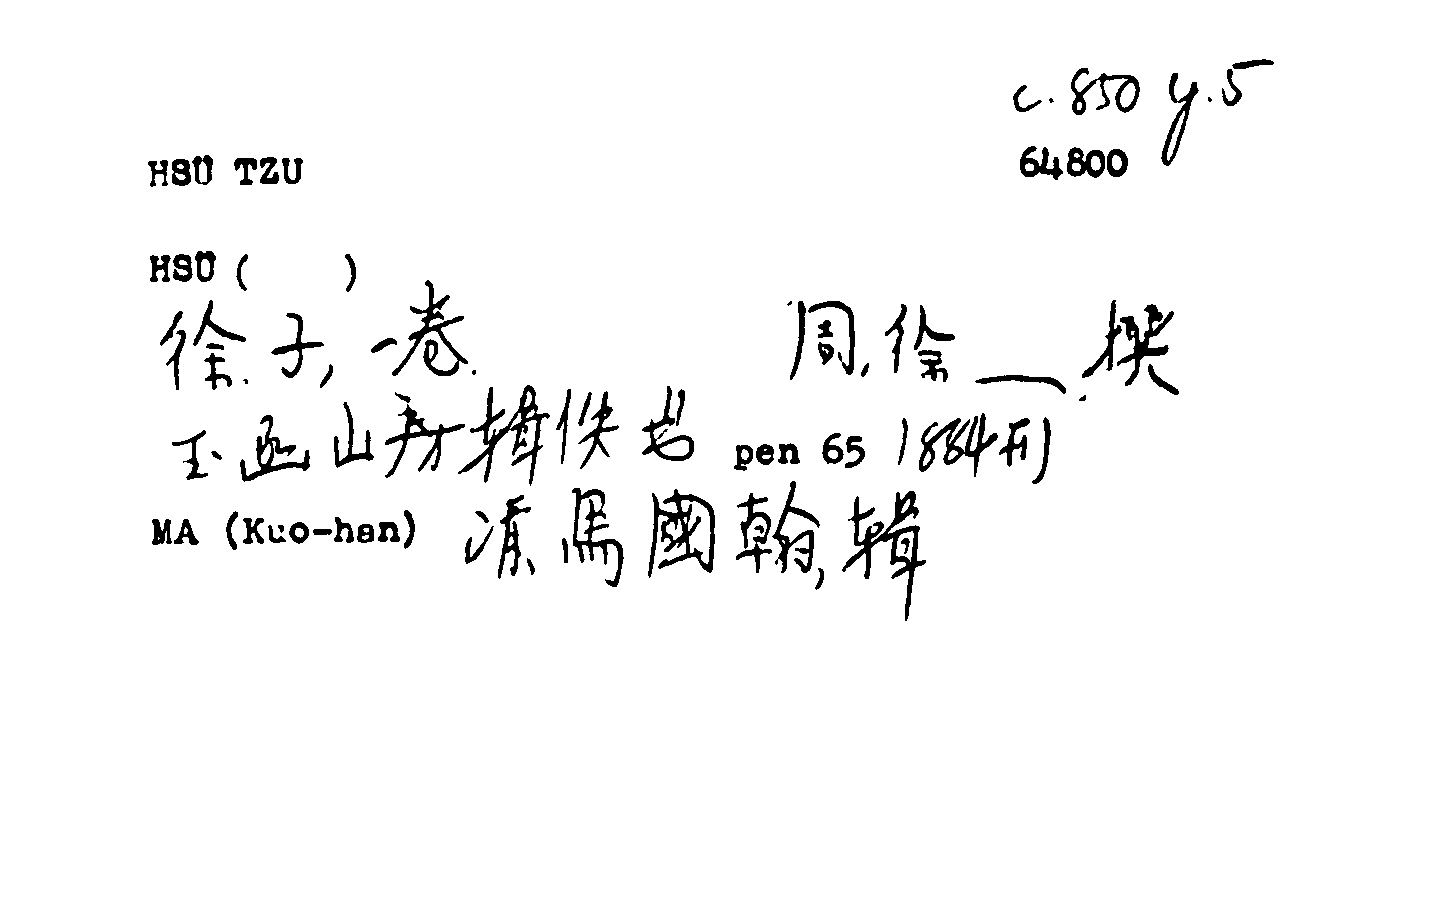 c.850 y.5
HSÜ TZU 64800
HSÜ ( )
徐子,一卷. 周,徐__.撰
玉函山房輯佚书 pen 65 1884刊
MA (Kuo-han) 清馬國翰,輯